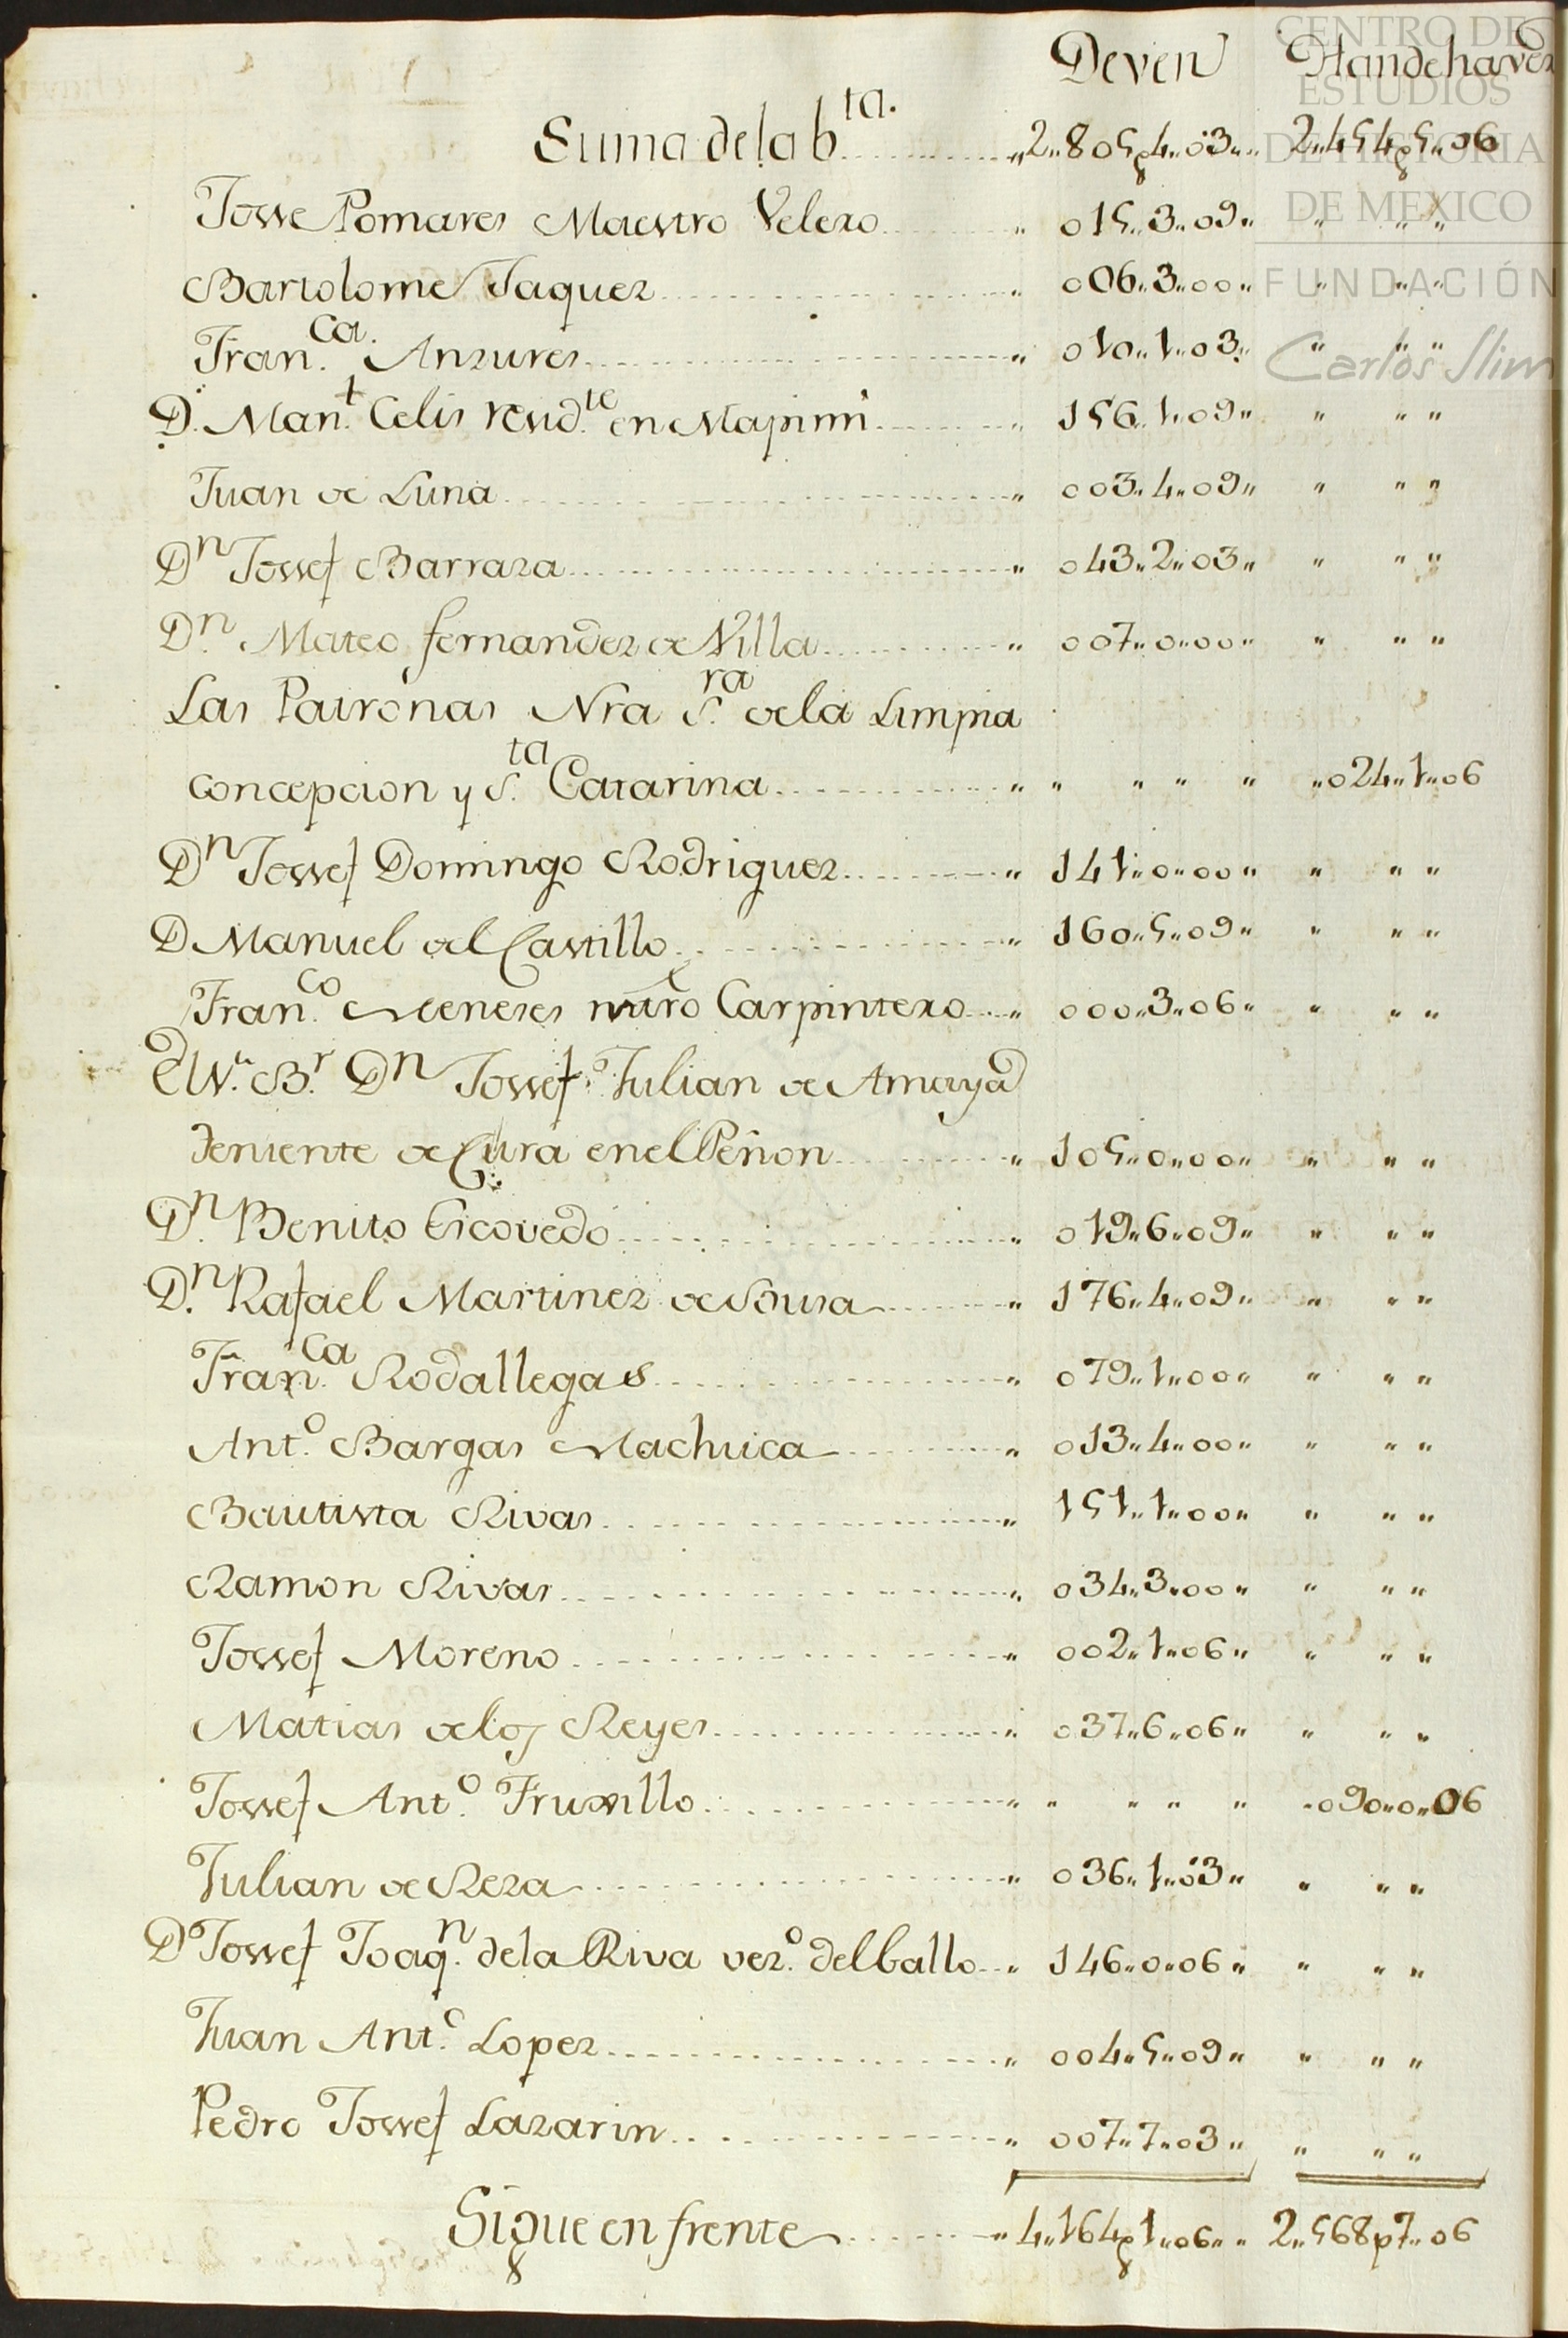 CENTRO DE
ESTUDIOS
DE HISTORIA
DE MEXICO
FUNDACIÓN
Carlos Slim
Deven Han de haver
Suma de la b.ta 2„805p4„03„ 2„454p5„06
Josse Pomares Maestro Velero „ 015„3„09„ „ „ „
Bartolome Jaquez „ 006„3„00„ „ „ „
Fran.ca Anzures „ 010„1„03„ „ „ „
D. Man.l Celis resid.te en Mapimi „ 156„1„09„ „ „ „
Juan de Luna „ 003„4„09„ „ „ „
Dn Jossef Barraza „ 043„2„03„ „ „ „
Dn. Mateo fernandez de Villa „ 007„0„00„ „ „ „
Las Patronas Nra S.ra de la Limpia
Concepcion y S.ta Catarina „ „ „ „ „ „024„1„06
Dn Jossef Domingo Rodriguez „ 141„0„00„ „ „ „
D Manuel del Castillo „ 160„5„09„ „ „ „
Fran.co Meneses mtro Carpintero „ 000„3„06„ „ „ „
B.r Dn Jossef Julian de Amaya
teniente de Cura en el Peñon „ 105„0„00„ „ „ „
Dn. Benito Escovedo „ 019„6„09„ „ „ „
D.n Rafael Martinez de Sousa „ 176„4„09„ „ „ „
Fran.ca Rodallegas „ 079„1„00„ „ „ „
Ant.o Bargas Machuca „ 013„4„00„ „ „ „
Bautista Rivas „ 151„1„00„ „ „ „
Ramon Rivas „ 034„3„00„ „ „ „
Jossef Moreno „ 002„1„06„ „ „ „
Matias de los Reyes „ 037„6„06„ „ „ „
Jossef Ant.o Truxillo „ „ „ „ „ „090„0„06
Julian de Reza „ 036„1„03„ „ „ „
D Jossef Joaq.n de la Riva vez.o del Gallo „ 146„0„06„ „ „ „
Juan Ant.o Lopez „ 004„5„09„ „ „ „
Pedro Jossef Lazarin „ 007„7„03„ „ „ „
Sigue en frente „ 4„164p1„06„ „ 2„568p7„06